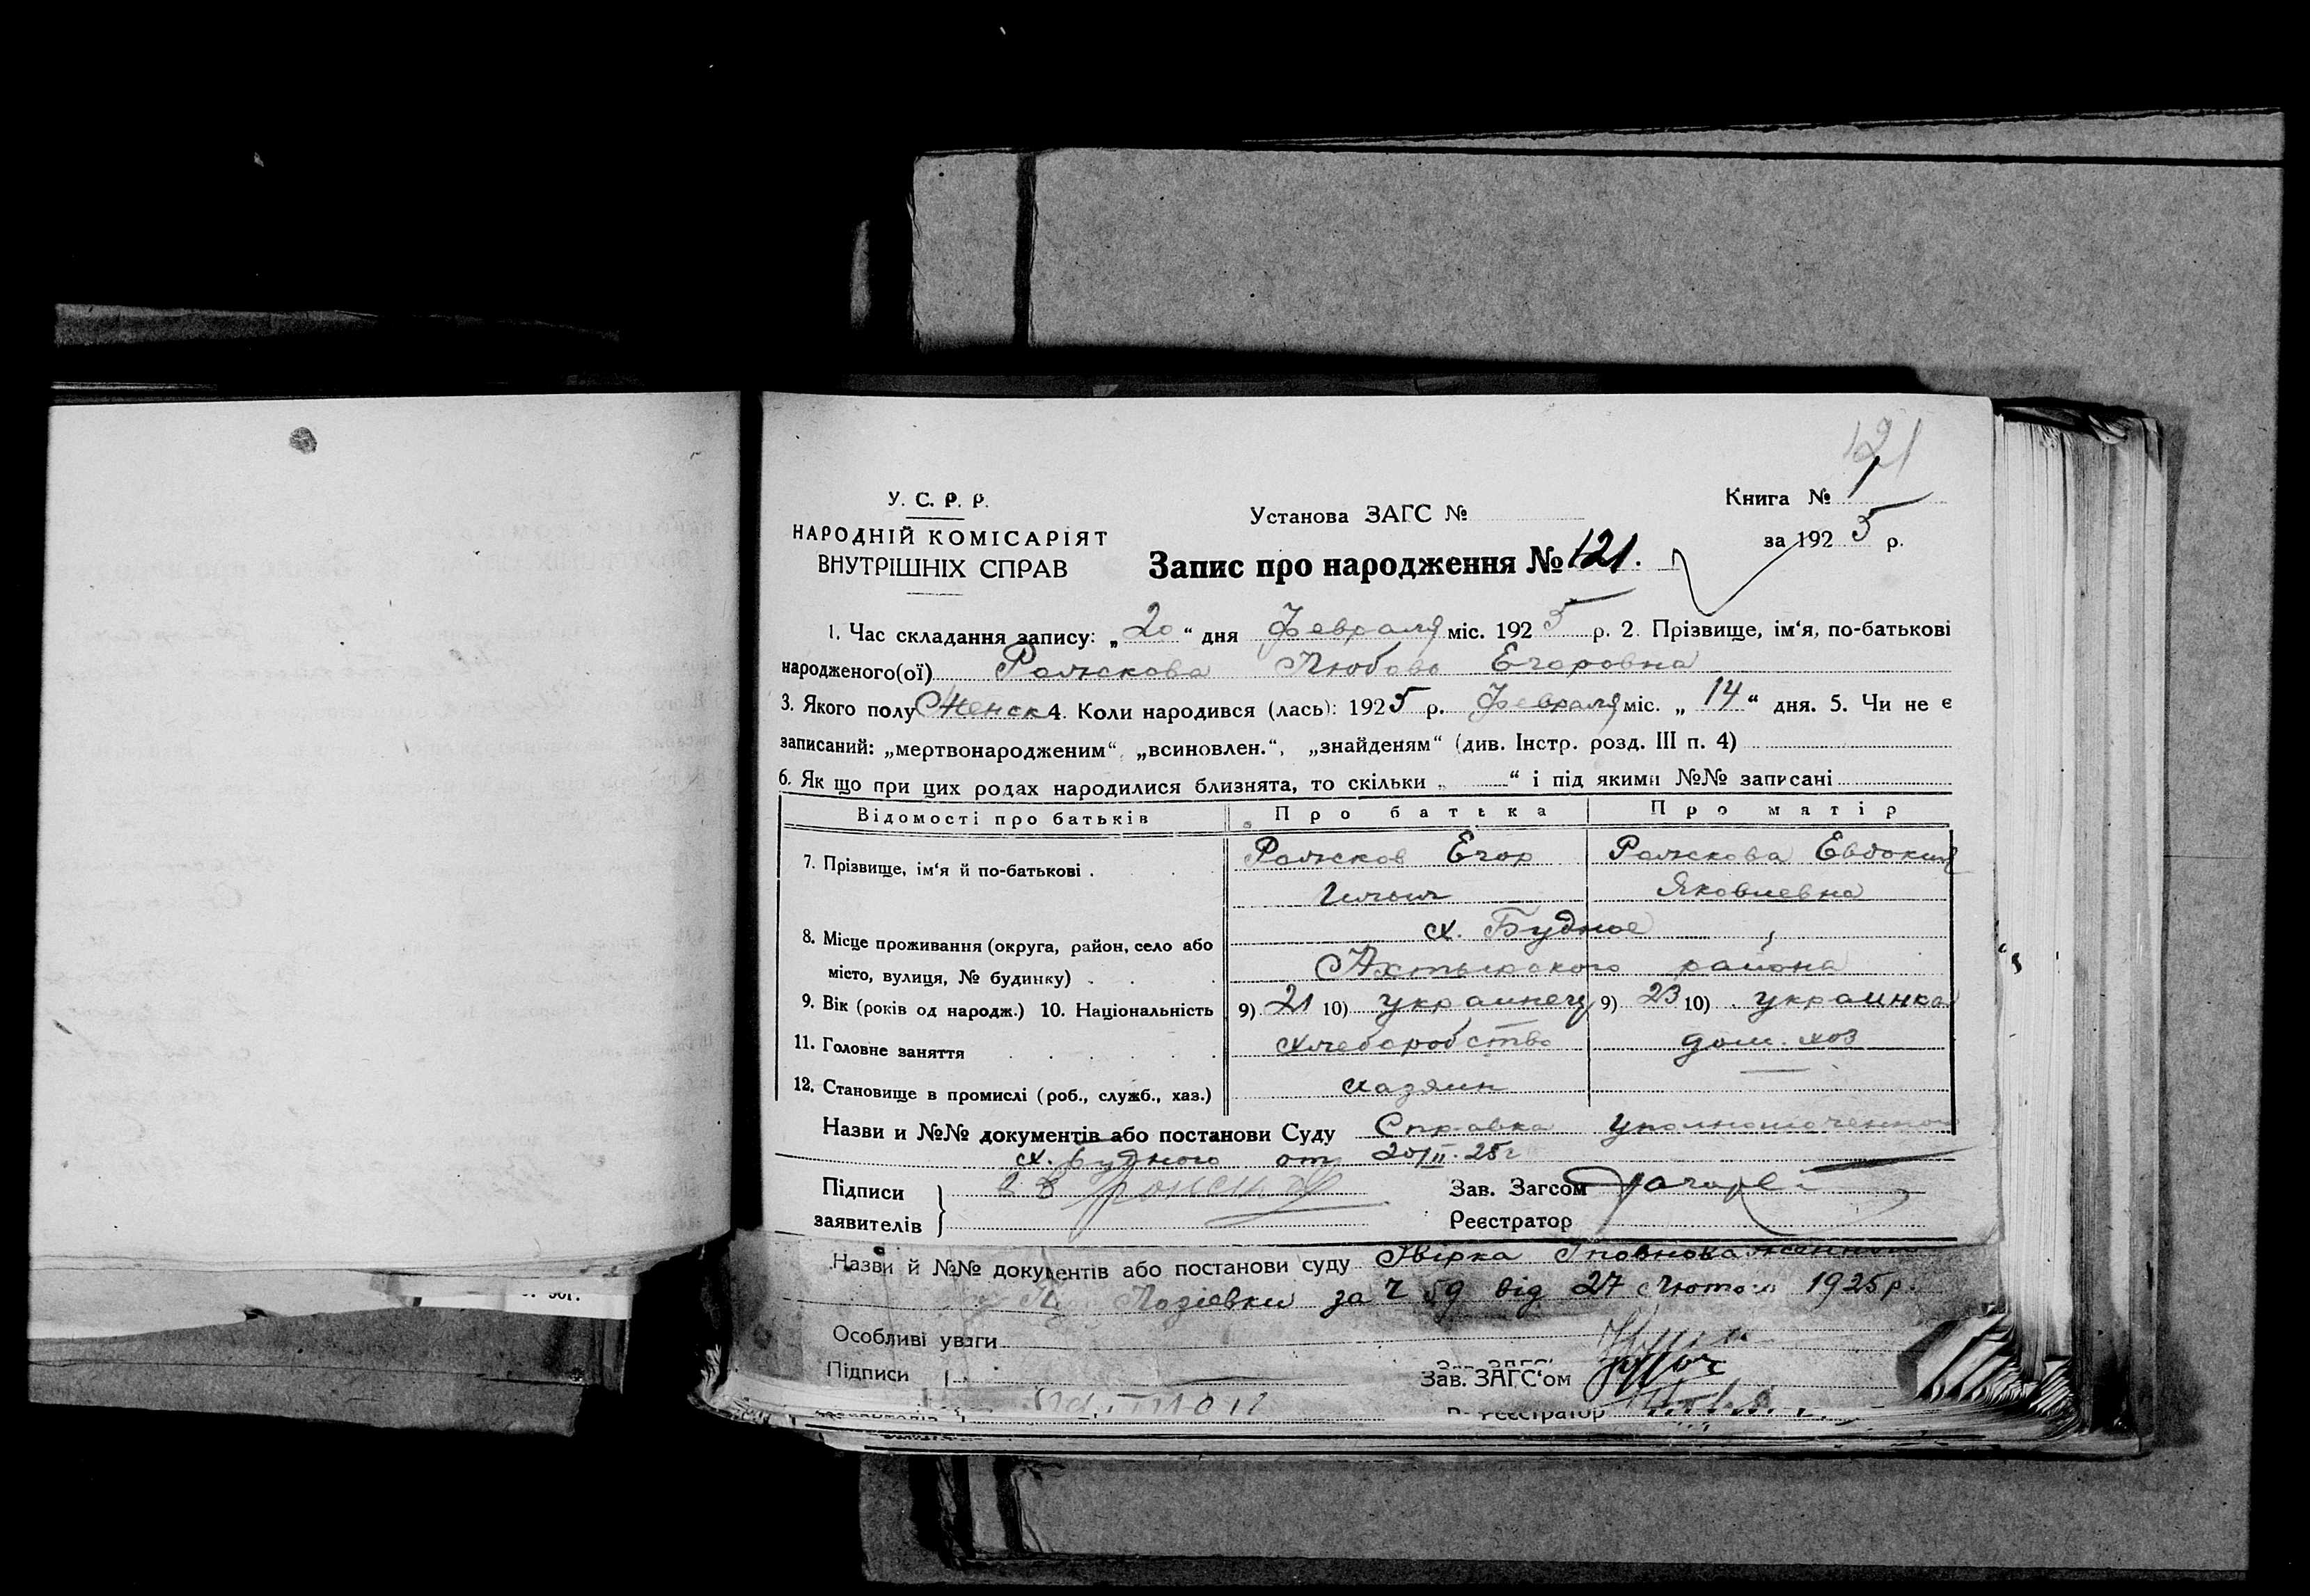 121
У. С. Р. Р.
НАРОДНІЙ КОМІСАРІЯТ
ВНУТРІШНІХ СПРАВ
Установа ЗАГС №
Книга № 1
за 1925 р.
Запис про народження № 121.
1. Час складання запису: „20“ дня Февраля міс. 1925 р. 2. Прізвище, ім‘я, по-батькові
народженого(ої) Рожскова Любовь Егоровна
3. Якого полу Женск 4. Коли народився (лась): 1925 р. Февраля міс. „14“ дня. 5. Чи не є
записаний: „мертвонародженим“, „всиновлен.“, „знайденям“ (див. Інстр. розд. III п. 4)
6. Як що при цих родах народилися близнята, то скільки „ “ і під якими №№ записані
Відомості про батьків Про батька Про матір
7. Прізвище, ім‘я й по-батькові . Рожсков Егор Рожскова Евдокия
Ильич Яковлевна
8. Місце проживання (округа, район, село або х. Будное
місто, вулиця, № будинку) . Ахтырского района
9. Вік (років од народж.) 10. Національність 9) 21 10) украинец 9) 23 10) украинка
11. Головне заняття хлеборобство дом. хоз
12. Становище в промислі (роб., служб., хаз.) хазяин
Назви и №№ документів або постанови Суду Справка уполномоченного
х. Будного от 20/II 25г
Підписи
заявителів
Зав. Загсом
Реєстратор
Назви й №№ документів або постанови суду Звірка Уповноваженного
Лозіевки за Ч 59 від 27 Лютого 1925 р.
Особливі уваги
Підписи
Зав. ЗАГС‘ом
Реєстратор